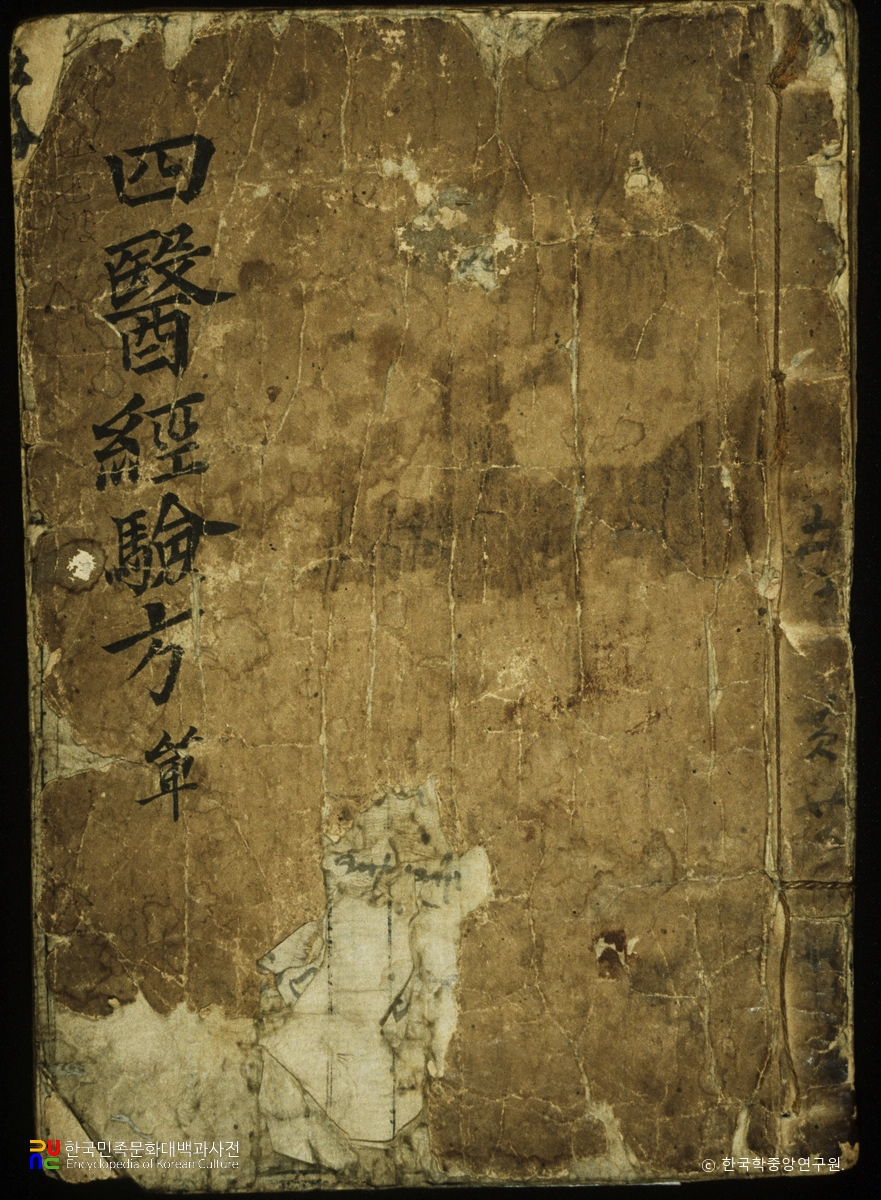 四醫經驗方 単
한국민족문화대백과사전
Encyclopedia of Korean Culture
ⓒ 한국학중앙연구원